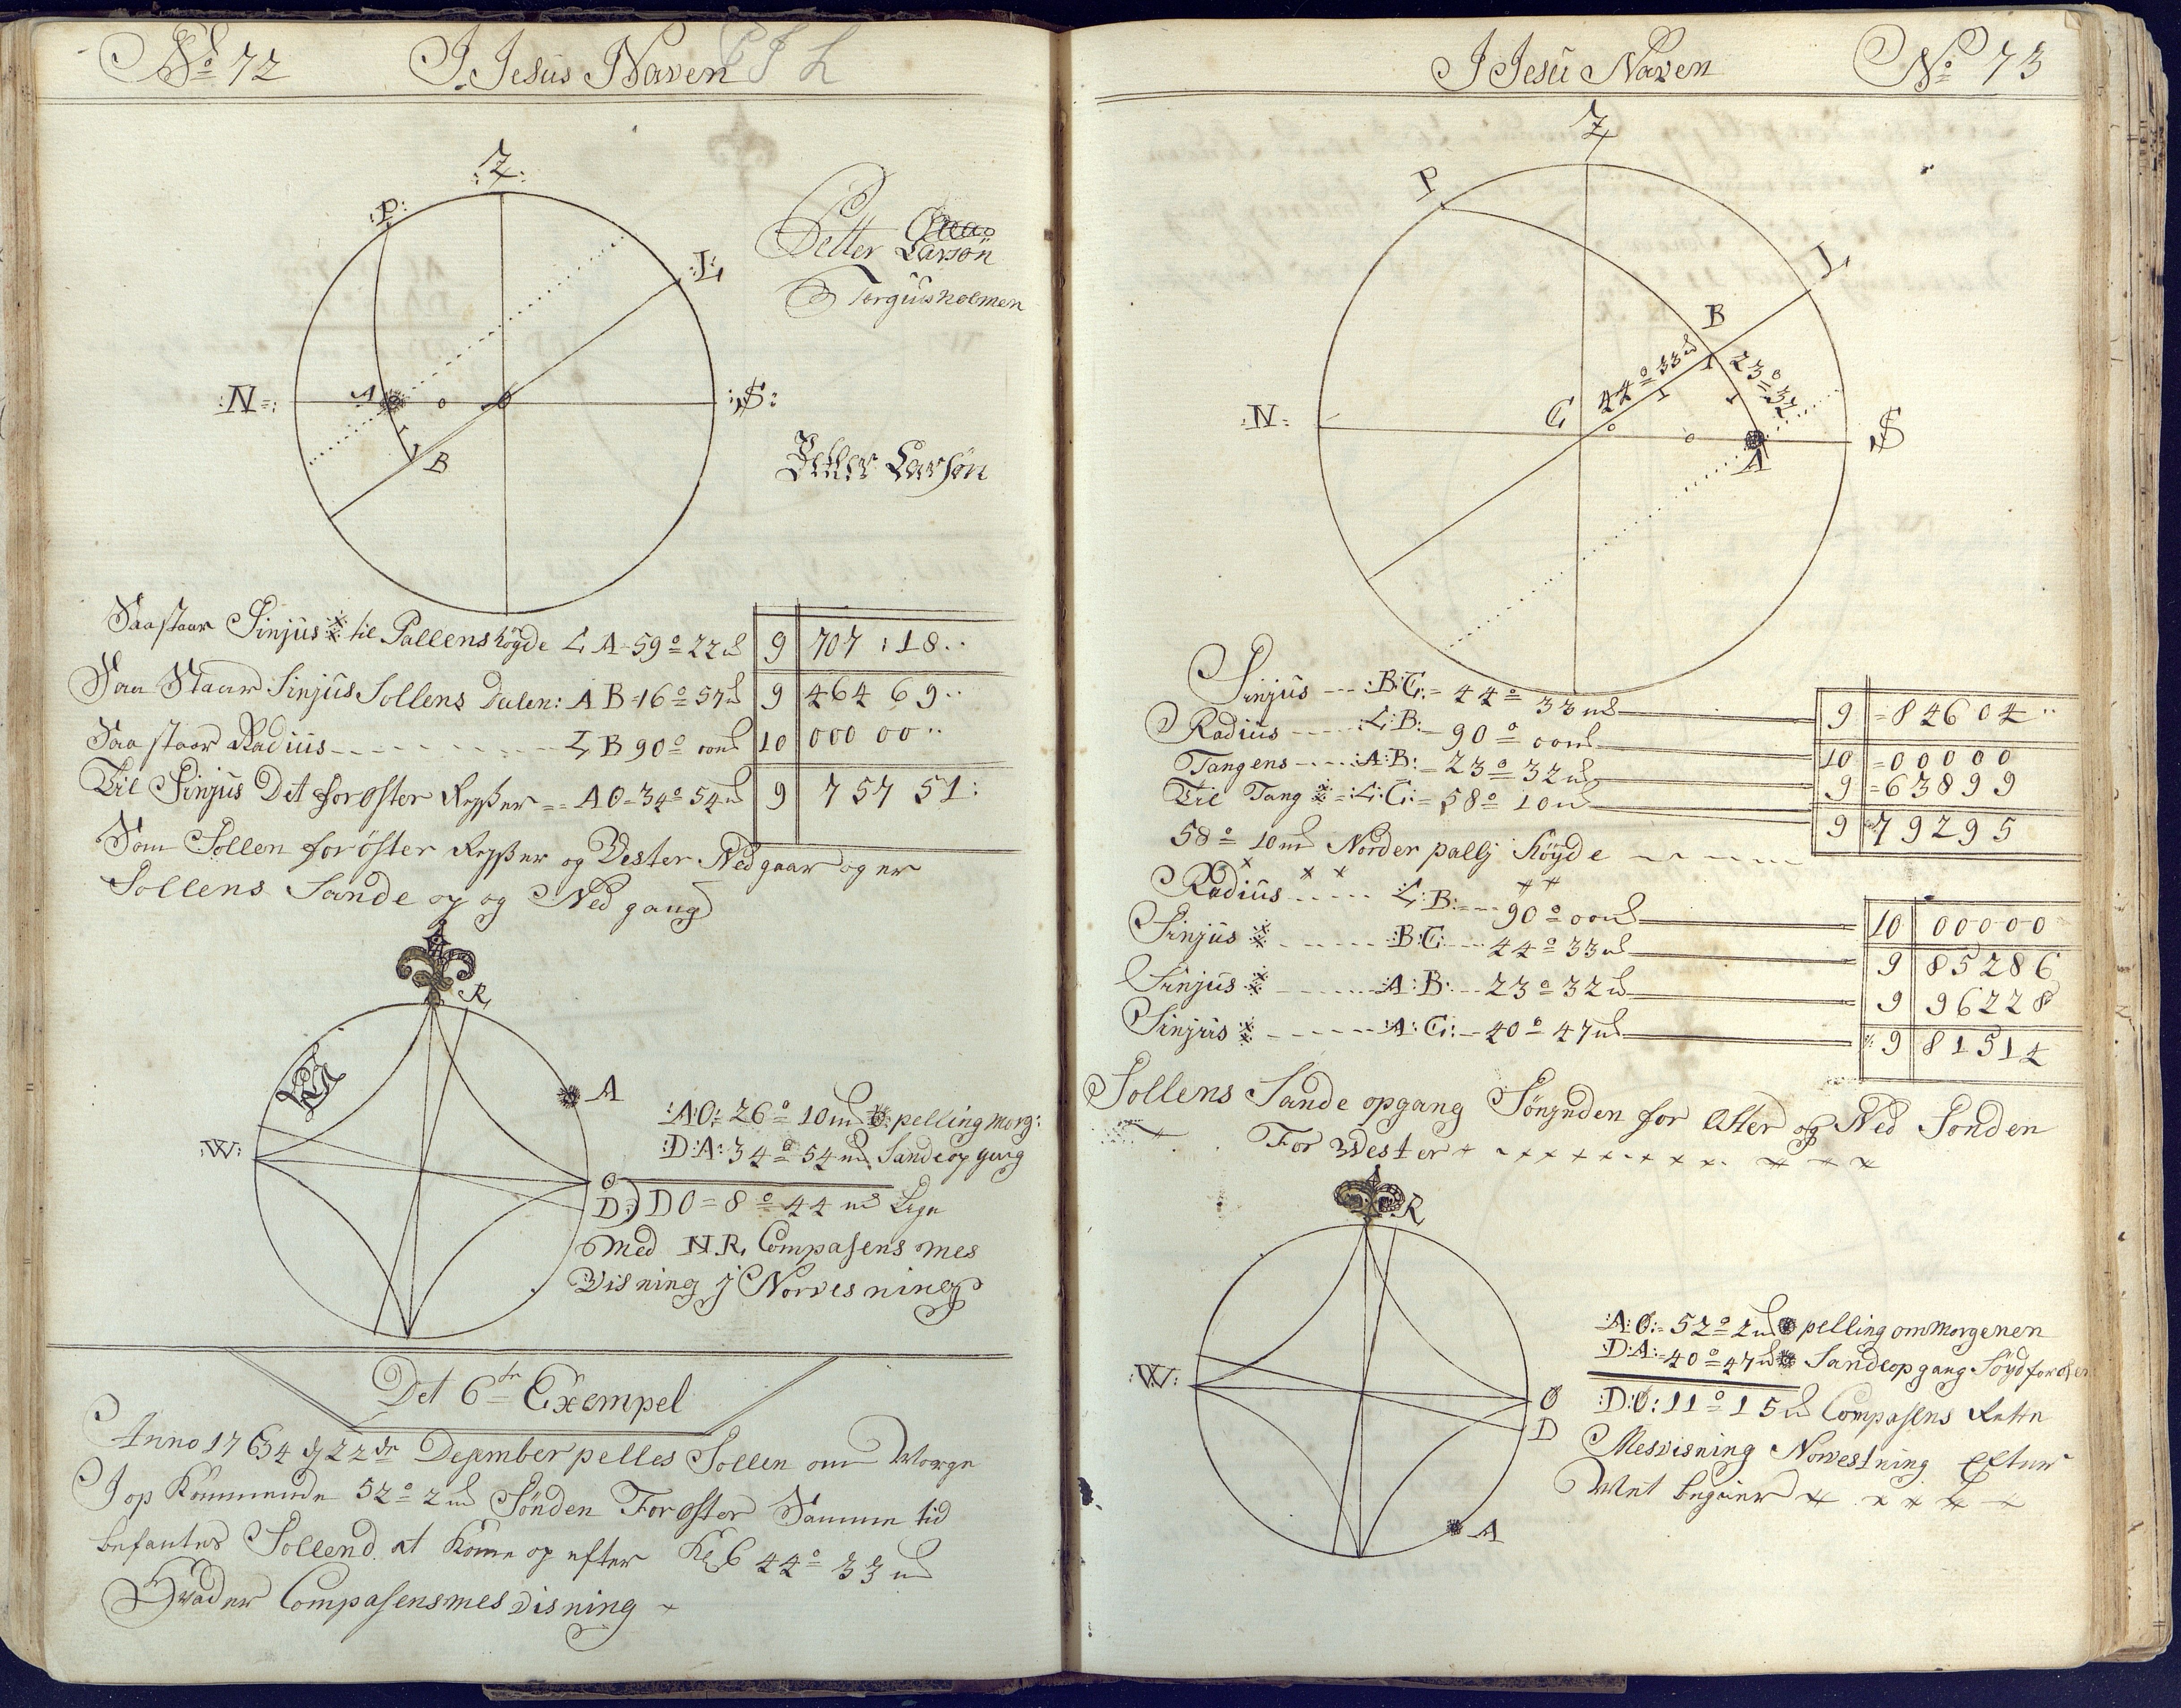 No 72
I Jesus Naven
P J L
:Z:
:P:
:L:
:N:
A
o
:S:
B
Petter
Larsøn
Torgusholmen
Petter Larsøn
Saa staar Sinjus til Pallens høyde L A 59° 22m 9 707 : 18..
Saa Staar Sinjus Sollens Dalen: A B 16° 57m 9 464 69..
Saa staar Radius L B 90° 00m 10 000 00..
Til Sinjus Det for Øster Reyßer A O 34° 54m 9 757 51:
Som Sollen for Øster Reyßer og Vester Nedgaar og er
Sollens Sande op og Ned gang
R
A
:W:
O
D:
:A:O: 26° 10m pelling morg:
:D:A: 34° 54m Sande op gang
D O = 8° 44m Lige
Med N R, Compasens mes
Visning j Norvesning
Det 6te Exempel
Anno 1764 d 22de Desember pelles Sollen om Morge
I op Kommende 52° 2m Sønden For Øster Samme tid
befantes Sollend at Kome op efter Kl 6 44° 33m
Hvad er Compasensmesvisning
I Jesu Naven
No 73
Z
P
L
B
44° 33m
23° 32
C
:N:
o
S
A
Sinjus B:C: 44° 33m 9 = 84604..
Radius L:B: 90° 00m 10 = 00000
Tangens A:B: 23° 32m 9 = 63899
Til Tang :L:C: 58° 10m 9 79295
58° 10m Norder pallj høyde
Radius L:B: 90° 00m 10 00000
Sinjus B:C: 44° 33m 9 85286
Sinjus A:B: 23° 32m 9 96228
Sinjus A:C: 40° 47m 9 81514
Sollens Sande opgang Sønnden for Øster og Ned Sonden
For Wester
R
:W:
O
D
A
:A:O: 52° 2m pelling om morgenen
:D:A: 40° 47m Sandeopgang Søyd for Øster
:D:O: 11° 15m Compasens Rette
Mesvisning Norvestning Efter
Wet begier